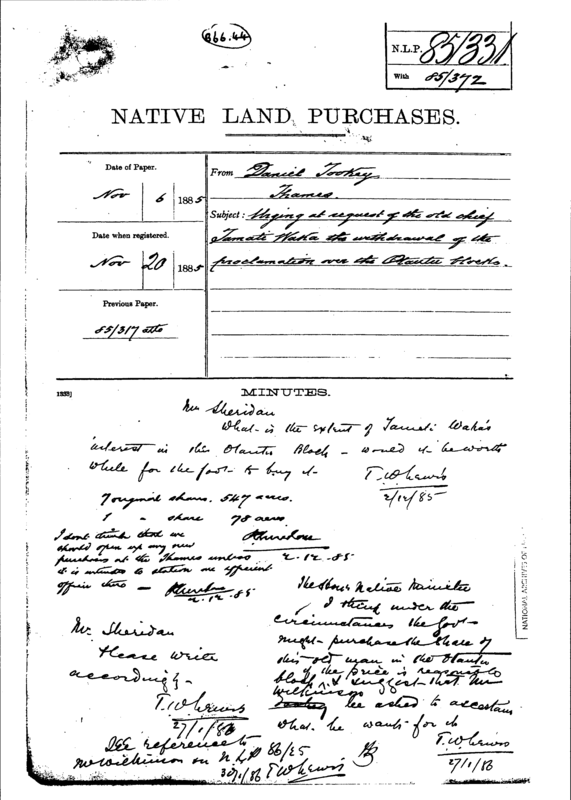 B66.44
N.L.P. 85/331
With 85/372
NATIVE LAND PURCHASES.
Date of Paper.
Nov 6 1885
Date when registered.
Nov 20 1885
Previous Paper.
85/317
From Daniel Tookey
Thames.
Subject: Urging at request of the old chief
Tamati Waka the withdrawal of the
proclamation over the Otautu blocks.
MINUTES.
Mr Sheridan
What is the extent of Tamati Waka's
interest in this Otautu Block – would it be worth
while for the Govt to buy it
T.W. Lewis
2/12/85
7 original shares. 547 acres.
1 " share 78 acres.
2.12.85
I dont think that we
should open up any new
purchases at the Thames unless
it is intended to station an efficient
officer there –
2.12.85
The Hon Native Minister
I think under the
circumstances the Govt
might purchase the share of
this old man in the Otautu
block if the price is reasonable
& I suggest that Mr
Wilkinson
be asked to ascertain
what he wants for it
T.W. Lewis
27/1/86
Mr. Sheridan
Please write
accordingly –
T.W. Lewis
27/1/86
See reference to
Mr Wilkinson on N.L.P 86/25
T.W. Lewis
NATIONAL ARCHIVES OF